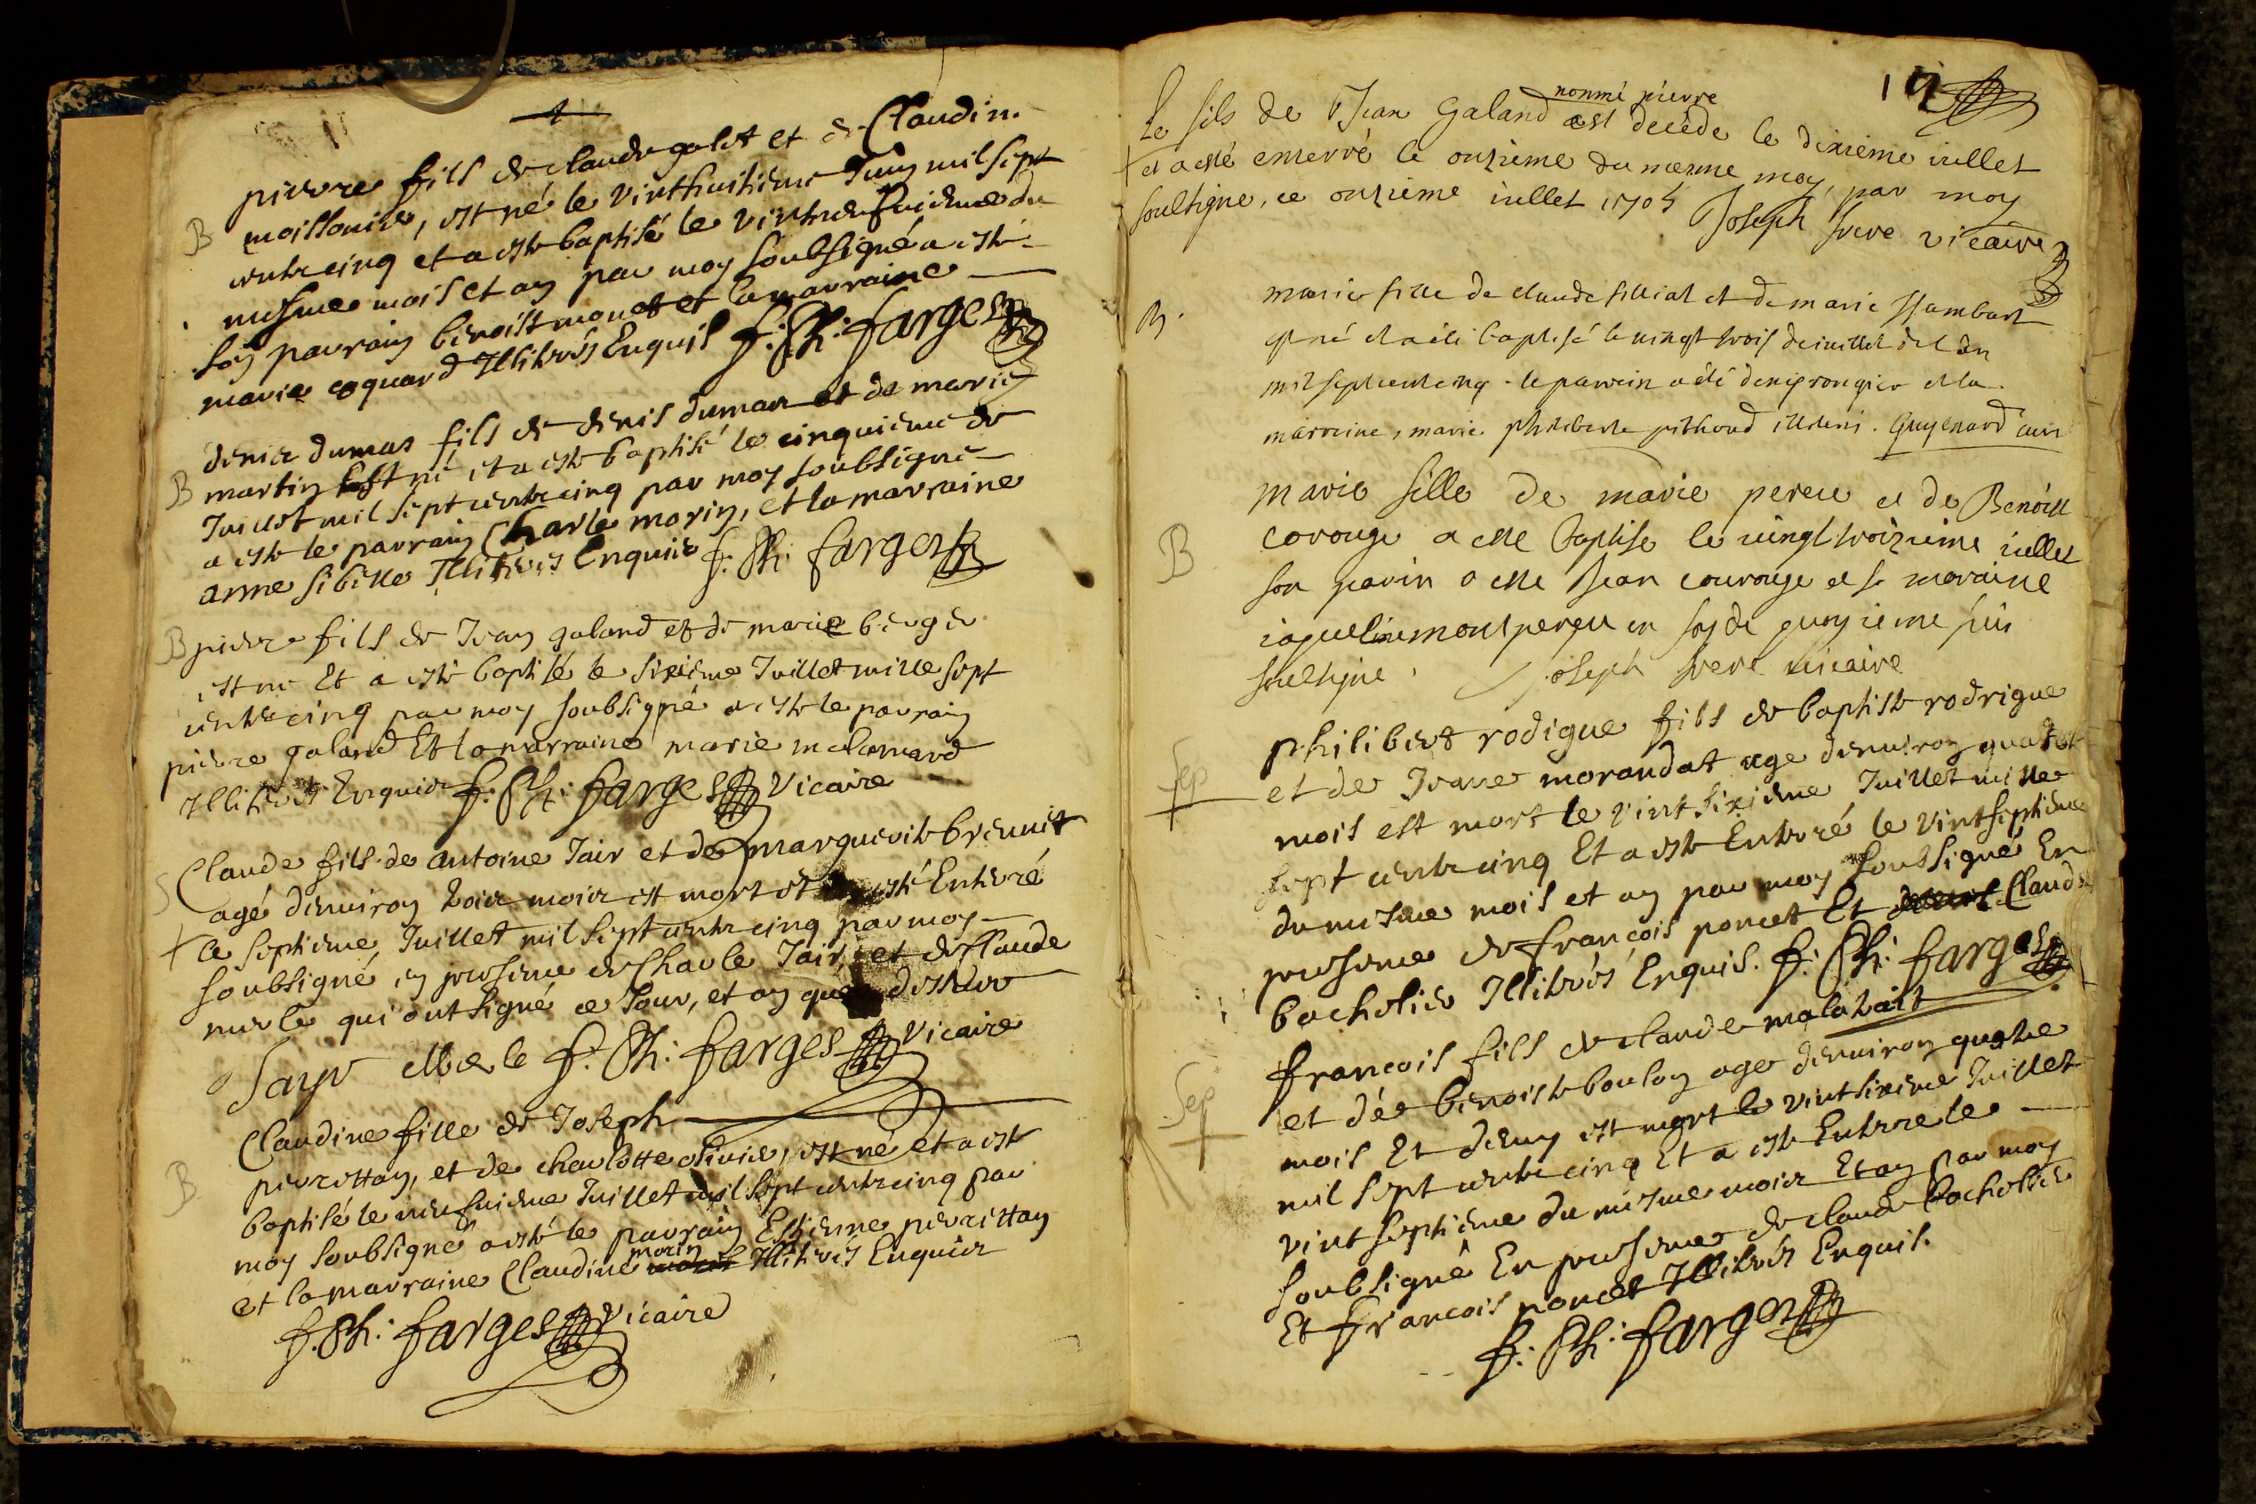 B pierre fils de claude galet et de Claudine
moissonier, est né le vinthuitieme Juin mil sept
cents cinq et a esté baptisé le vintneufuieme du
mesme mois et an par moy soubsigné a esté
son parrain benoist monet et la marraine
marie coquard Illitérés Enquis f: Ph: farges
denis dumas fils de denis dumas et de marie
B martin est né et a esté baptisé le cinquieme de
Juillet mil sept cents cinq par moy soubsigné
a esté le parrain Charle morin, et la marraine
anne sibille Illiterés Enquis f: Ph: farges
B pierre fils de Jean galand et de marie berger
est né Et a esté baptisé le sixieme Juillet mille sept
cents cinq par moy soubsigné a esté le parrain
pierre galand Et la marraine marie malamard
Illiterés Enquis f: Ph: farges Vicaire
S Claude fils de antoine Jair et de marguerite
agé denuiron trois mois est mort et a esté Enterré
le septieme Juillet mil sept cents cinq par moy
soubsigné en presence de Charle Jair et de Claude
merle qui ont signé ce Jour, et an que dessus
Jayr Merle f: Ph: farges Vicaire
Claudine fille de Joseph
B pierrettan, et de charlotte oliuier, est né et a esté
baptisé le neufuieme Juillet mil sept cents cinq par
moy soubsigné a esté le parrain Estienne pierrettan
et la marraine Claudine morin Illiterés Enquis
f: Ph: farges vicaire
Le fils de Jean Galand nommé pierre est decede le dixieme iullet
et a esté enterré le onzieme du mesme moy, par moy
soultigne, ce onzieme iullet 1705 Joseph frere vicaire
B. marie fille de claude fillial et de marie Jambart
est né et a été baptisé le vingt trois de iuillet de l'an
mil sept cent cinq. le parrein a été denis rongier et la
marreine, marie philiberte pithoud illiteris. Guyenard curé
marie fille de marie pereu et de Benoist
B corouge a esté baptise le vingt troizieme iullet
son parin a esté Jean courouge et sa maraine
iaqueline monpereu en foy de quoy ie me suis
soultigne. Joseph frere vicaire
philibert rodigue fils de baptiste rodrigue
Sep et de Jeane morandat age denuiron quatre
mois est mort le vint sixieme Juillet mille
sept cents cinq Et a esté Enterré le vintseptieme
du mesme mois et an par moy soubsigné En
presence de francois poncet Et Claude
bachelier Illiterés Enquis. f: Ph: farges
francois fils de claude malatrait
Sep et de benoiste boulon age denuiron quatre
mois Et demy est mort le vintsixieme Juillet
mil sept cents cinq Et a esté Enterre le
vint septieme du mesme mois Et an par moy
soubsigné En presence de claude bachelier
Et francois poncet Illiterés Enquis.
f: Ph: farges